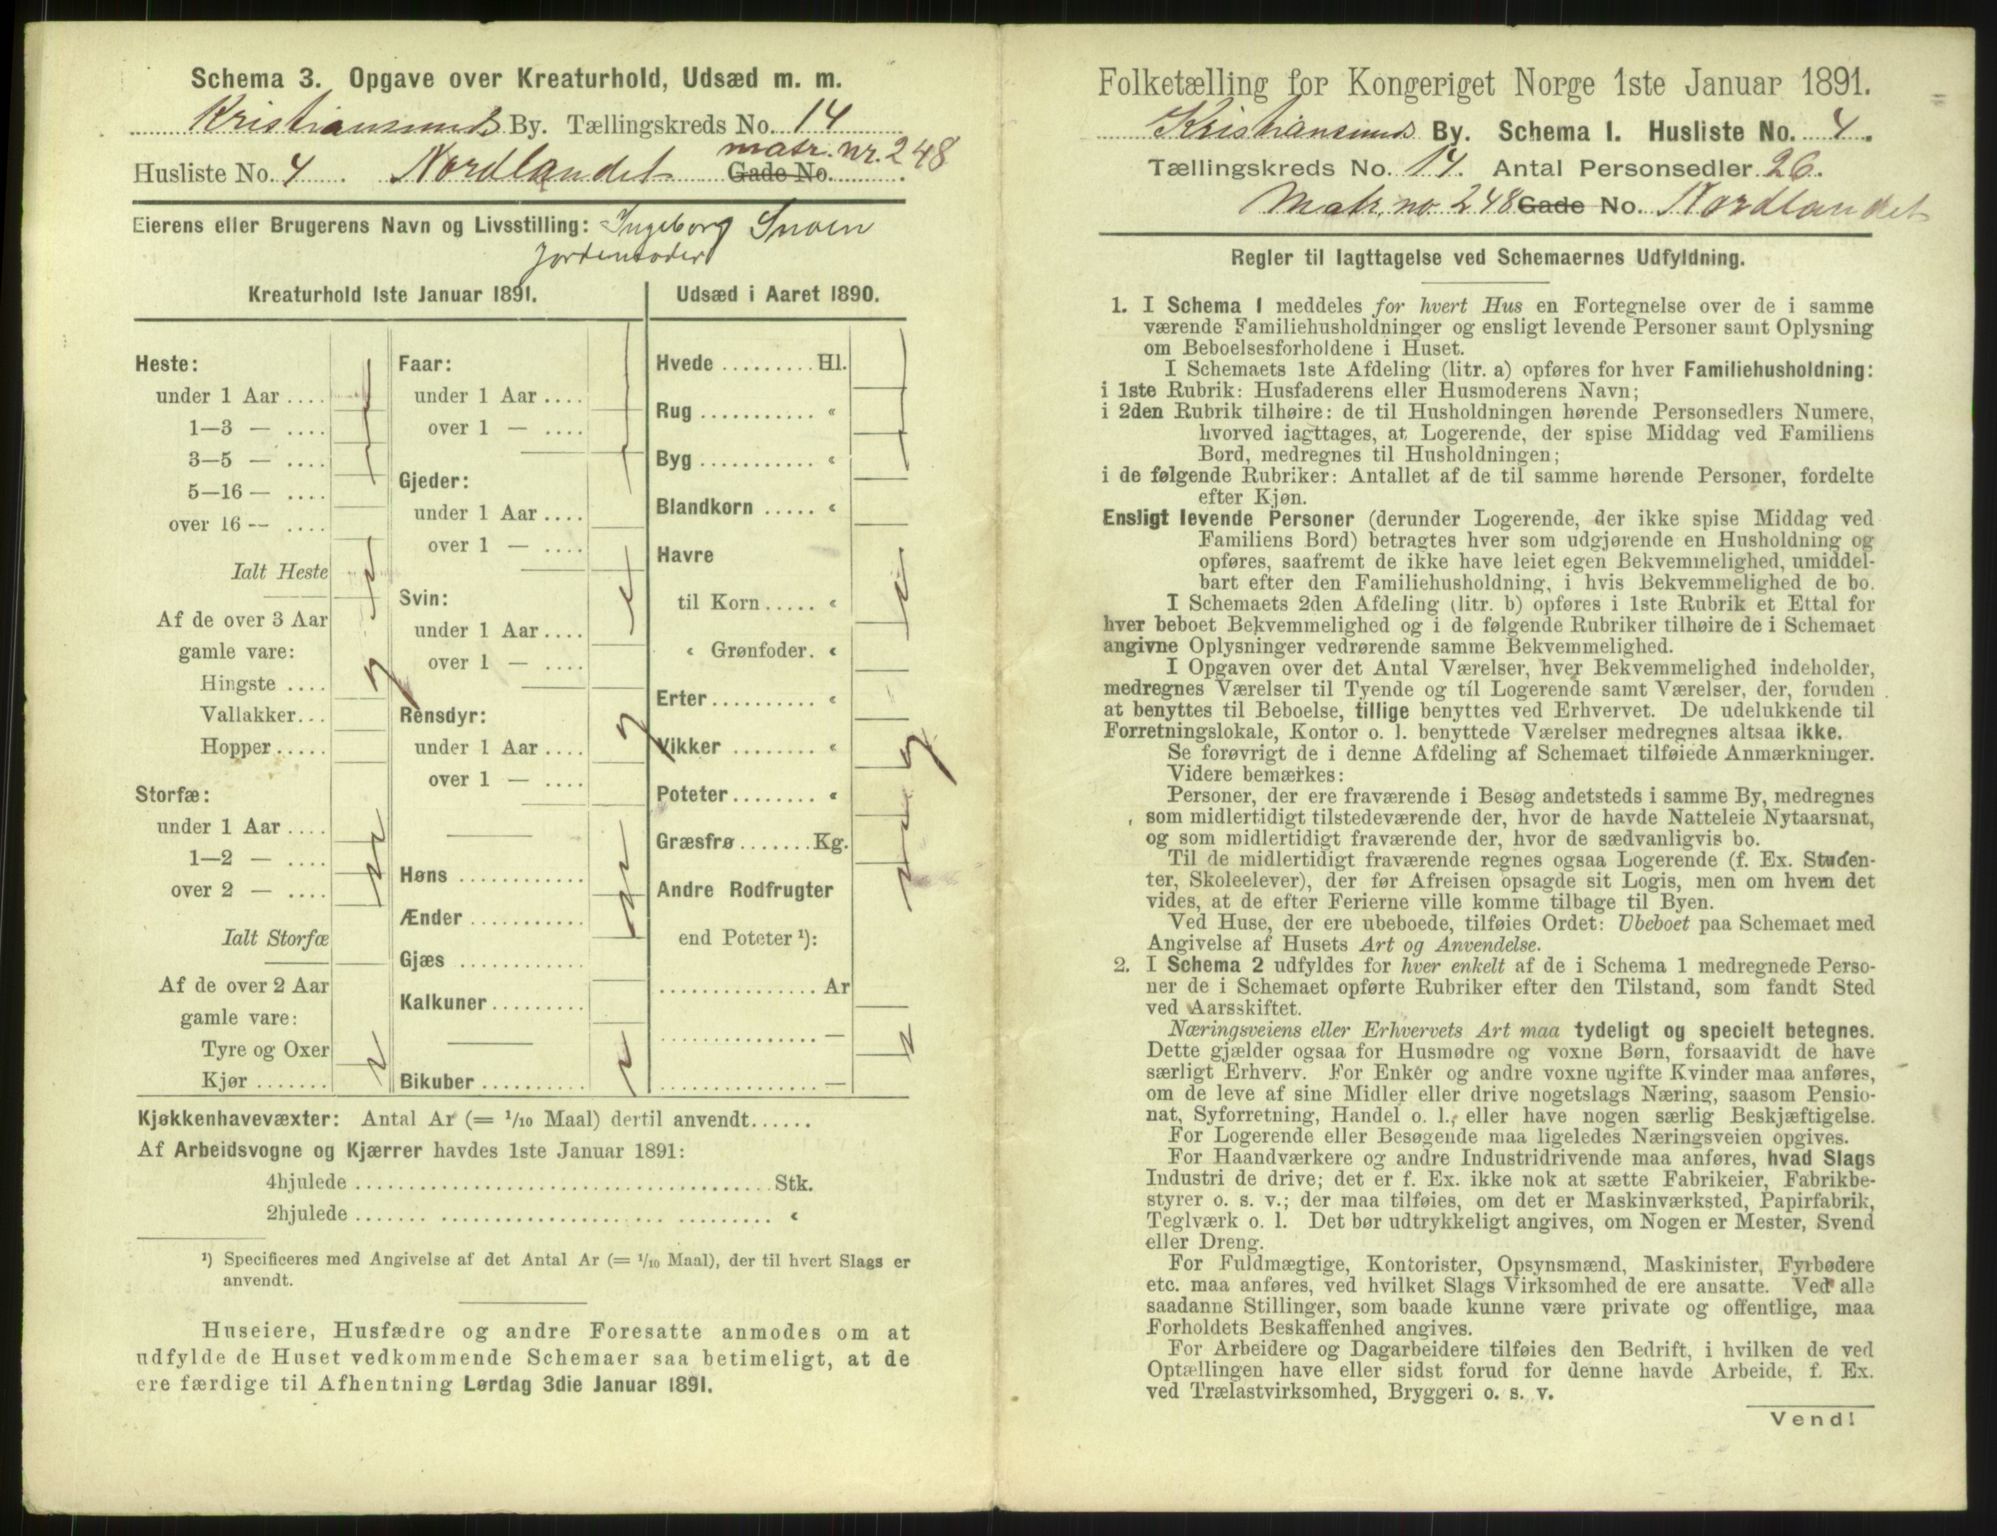 Schema 3. Opgave over Kreaturhold, Udsæd m. m.
Kristiansunds By. Tællingskreds No. 14
Husliste No. 4 Nordlandet matr. nr. 248 Gade No.
Eierens eller Brugerens Navn og Livsstilling: Ingeborg
Jordemoder
Kreaturhold 1ste Januar 1891.
Heste:
under 1 Aar ....
1—3 — ....
3—5 — ....
5—16 — ....
over 16 — ....
Ialt Heste
Af de over 3 Aar
gamle vare:
Hingste ....
Vallakker...
Hopper.....
Storfæ:
under 1 Aar ....
1—2 — ....
over 2 — ....
Ialt Storfæ
Af de over 2 Aar
gamle vare:
Tyre og Oxer
Kjør .......
Faar:
under 1 Aar ....
over 1 — ....
Gjeder:
under 1 Aar ....
over 1 — ....
Svin:
under 1 Aar ....
over 1 — ....
Rensdyr:
under 1 Aar ....
over 1 — ....
Høns ............
Ænder ...........
Gjæs ............
Kalkuner.........
Bikuber ..........
Udsæd i Aaret 1890.
Hvede ......... Hl.
Rug ........... «
Byg ........... «
Blandkorn ..... «
Havre
til Korn..... «
« Grønfoder. «
Erter.......... «
Vikker ........ «
Poteter........ «
Græsfrø....... Kg.
Andre Rodfrugter
end Poteter ¹):
............... Ar
............... —
............... —
Kjøkkenhavevæxter: Antal Ar (= 1/10 Maal) dertil anvendt......
Af Arbeidsvogne og Kjærrer havdes 1ste Januar 1891:
4hjulede ........................................ Stk.
2hjulede ....... ..................... ......... «
¹) Specificeres med Angivelse af det Antal Ar (= 1/10 Maal), der til hvert Slags er
anvendt.
Huseiere, Husfædre og andre Foresatte anmodes om at
udfylde de Huset vedkommende Schemaer saa betimeligt, at de
ere færdige til Afhentning Lørdag 3die Januar 1891.
Folketælling for Kongeriget Norge 1ste Januar 1891.
Kristiansunds By. Schema I. Husliste No. 4.
Tællingskreds No. 14. Antal Personsedler 26.
Matr. no. 248 Gade No. Nordlandet
Regler til Iagttagelse ved Schemaernes Udfyldning.
1. I Schema I meddeles for hvert Hus en Fortegnelse over de i samme
værende Familiehusholdninger og ensligt levende Personer samt Oplysning
om Beboelsesforholdene i Huset.
I Schemaets 1ste Afdeling (litr. a) opføres for hver Familiehusholdning:
i 1ste Rubrik: Husfaderens eller Husmoderens Navn;
i 2den Rubrik tilhøire: de til Husholdningen hørende Personsedlers Numere,
hvorved iagttages, at Logerende, der spise Middag ved Familiens
Bord, medregnes til Husholdningen;
i de følgende Rubriker: Antallet af de til samme hørende Personer, fordelte
efter Kjøn.
Ensligt levende Personer (derunder Logerende, der ikke spise Middag ved
Familiens Bord) betragtes hver som udgjørende en Husholdning og
opføres, saafremt de ikke have leiet egen Bekvemmelighed, umiddel-
bart efter den Familiehusholdning, i hvis Bekvemmelighed de bo.
I Schemaets 2den Afdeling (litr. b) opføres i 1ste Rubrik et Ettal for
hver beboet Bekvemmelighed og i de følgende Rubriker tilhøire de i Schemaet
angivne Oplysninger vedrørende samme Bekvemmelighed.
I Opgaven over det Antal Værelser, hver Bekvemmelighed indeholder,
medregnes Værelser til Tyende og til Logerende samt Værelser, der, foruden
at benyttes til Beboelse, tillige benyttes ved Erhvervet. De udelukkende til
Forretningslokale, Kontor o. l. benyttede Værelser medregnes altsaa ikke.
Se forøvrigt de i denne Afdeling af Schemaet tilføiede Anmærkninger.
Videre bemærkes:
Personer, der ere fraværende i Besøg andetsteds i samme By, medregnes
som midlertidigt tilstedeværende der, hvor de havde Natteleie Nytaarsnat,
og som midlertidigt fraværende der, hvor de sædvanligvis bo.
Til de midlertidigt fraværende regnes ogsaa Logerende (f. Ex. Studen-
ter, Skoleelever), der før Afreisen opsagde sit Logis, men om hvem det
vides, at de efter Ferierne ville komme tilbage til Byen.
Ved Huse, der ere ubeboede, tilføies Ordet: Ubeboet paa Schemaet med
Angivelse af Husets Art og Anvendelse.
2. I Schema 2 udfyldes for hver enkelt af de i Schema 1 medregnede Perso-
ner de i Schemaet opførte Rubriker efter den Tilstand, som fandt Sted
ved Aarsskiftet.
Næringsveiens eller Erhvervets Art maa tydeligt og specielt betegnes.
Dette gjælder ogsaa for Husmødre og voxne Børn, forsaavidt de have
særligt Erhverv. For Enker og andre voxne ugifte Kvinder maa anføres,
om de leve af sine Midler eller drive nogetslags Næring, saasom Pensio-
nat, Syforretning, Handel o. l., eller have nogen særlig Beskjæftigelse.
For Logerende eller Besøgende maa ligeledes Næringsveien opgives.
For Haandværkere og andre Industridrivende maa anføres, hvad Slags
Industri de drive; det er f. Ex. ikke nok at sætte Fabrikeier, Fabrikbe-
styrer o. s. v.; der maa tilføies, om det er Maskinværksted, Papirfabrik,
Teglværk o. l. Det bør udtrykkeligt angives, om Nogen er Mester, Svend
eller Dreng.
For Fuldmægtige, Kontorister, Opsynsmænd, Maskinister, Fyrbødere
etc. maa anføres, ved hvilket Slags Virksomhed de ere ansatte. Ved alle
saadanne Stillinger, som baade kunne være private og offentlige, maa
Forholdets Beskaffenhed angives.
For Arbeidere og Dagarbeidere tilføies den Bedrift, i hvilken de ved
Optællingen have eller sidst forud for denne havde Arbeide, f. Ex.
ved Trælastvirksomhed, Bryggeri o. s. v.
Vend!